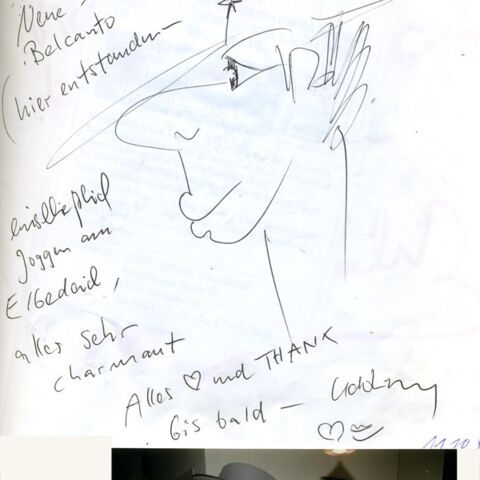 "Neue
Belcanto
(hier entstanden –
einschließlich
Joggen am
Elbedeich,
alles sehr
charmant
Alles ♡ und THANK
bis bald –
11.10